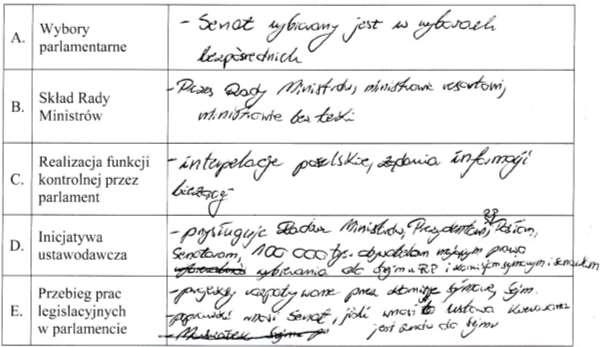 A. Wybory parlamentarne
- Senat wybierany jest w wyborach
bezpośrednich
B. Skład Rady Ministrów
- Prezes Rady Ministrów, ministrowie resortowi,
ministrowie bez teki
C. Realizacja funkcji kontrolnej przez parlament
- interpelacje poselskie, żądania informacji
bieżącej
D. Inicjatywa ustawodawcza
- przysługuje Radzie Ministrów, Prezydentowi RP, Posłom,
Senatorom, 100 000 tyś. obywatelom mającym prawo
wybierania do Sejmu RP i komisjom sejmowym i senackim
E. Przebieg prac legislacyjnych w parlamencie
- projekty rozpatrywane przez komisje sejmowe, Sejm.
- poprawki wnosi Senat, jeśli wnosi to ustawa kierowana
jest znów do Sejmu